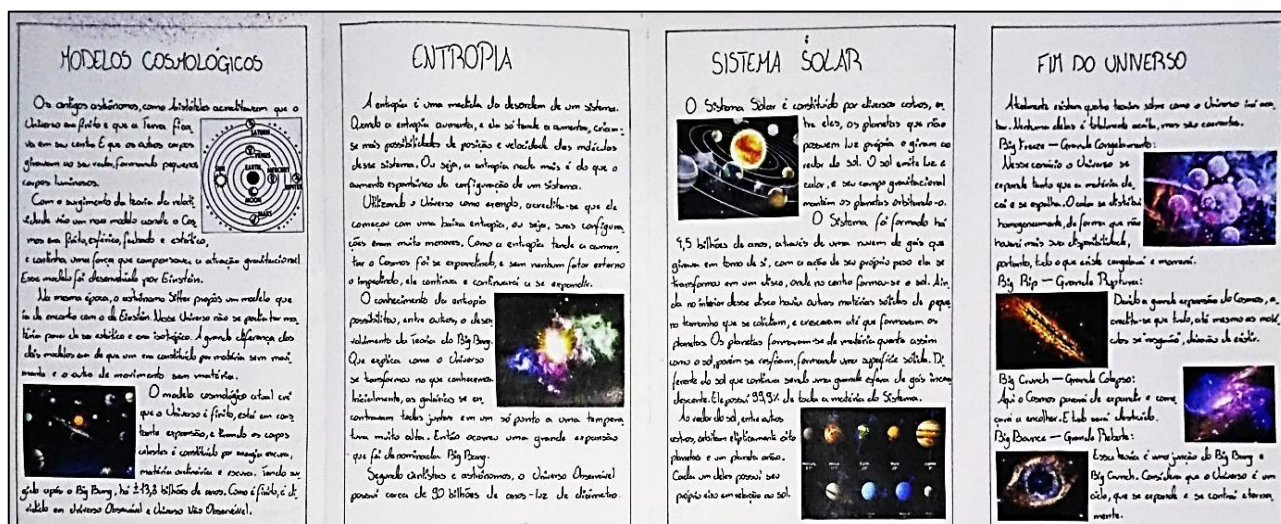 MODELOS COSMOLÓGICOS
Os antigos astrônomos, como Aristóteles acreditavam que o
Universo era finito e que a Terra fica
va em seu centro E que os outros corpos
giravam ao seu redor, formando pequenos
corpos luminosos.
Com o surgimento da teoria da relati
vidade veio um novo modelo aonde o Cos
mos era finito, esférico, fechado e estático,
e continha uma força que compensava a atração gravitacional
Esse modelo foi desenvolvido por Einstein.
Na mesma época, o astrônomo Sitter propôs um modelo que
ia de encontro com o de Einstein. Nesse Universo não se podia ter ma
téria para de ser estático e era isotrópico. A grande diferença dos
dois modelos era de que um era constituído por matéria sem movi
mento e o outro de movimento sem matéria.
O modelo cosmológico atual crê
que o Universo é finito, está em cons
tante expansão, e tirando os corpos
celestes é constituído por energia escura,
matéria ordinária e escura. Tendo su
gido após o Big Bang, há ±13,8 bilhões de anos. Como é finito, é di
vidido em Universo Observável e Universo Não Observável.
SATURN
VENUS
SUN
EARTH
MERCURY
MOON
JUPITER
MARS
ENTROPIA
A entropia é uma medida da desordem de um sistema.
Quando a entropia aumenta, e ela só tende a aumentar, criam-
se mais possibilidades de posição e velocidade das moléculas
desse sistema. Ou seja, a entropia nada mais é do que o
aumento espontâneo da configuração de um sistema.
Utilizando o Universo como exemplo, acredita-se que ele
começou com uma baixa entropia, ou seja, suas configura
ções eram muito menores. Como a entropia tende a aumen
tar o Cosmos foi se expandindo, e sem nenhum fator externo
o impedindo, ele continua e continuará a se expandir.
O conhecimento da entropia
possibilitou, entre outros, o desen
volvimento da teoria do Big Bang.
Que explica como o Universo
se transformou no que conhecemos.
Inicialmente, as galáxias se en
contravam todas juntas em um só ponto a uma tempera
tura muito alta. Então ocorreu uma grande expansão
que foi denominada Big Bang.
Segundo cientistas e astrônomos, o Universo Observável
possui cerca de 90 bilhões de anos-luz de diâmetro.
SISTEMA SOLAR
O Sistema Solar é constituído por diversos astros, en
tre eles, os planetas que não
possuem luz própria e giram ao
redor do sol. O sol emite luz e
calor, e seu campo gravitacional
mantém os planetas orbitando-o.
O Sistema foi formado há
4,5 bilhões de anos, através de uma nuvem de gás que
girava em torno de si, com a ação de seu próprio peso ela se
transformou em um disco, onde no centro formou-se o sol. Ain
da no interior desse disco havia outras matérias sólidas de peque
no tamanho que se colidiam, e cresceram até que formaram os
planetas. Os planetas formaram-se de matéria quente assim
como o sol, porém se resfriam, formando uma superfície sólida. Di
ferente do sol que continua sendo uma grande esfera de gás incan
descente. Ele possui 99,8% de toda a matéria do Sistema.
Ao redor do sol, entre outros
astros, orbitam elipticamente oito
planetas e um planeta anão.
Cada um deles possui seu
próprio eixo em relação ao sol.
FIM DO UNIVERSO
Atualmente existem quatro teorias sobre como o Universo irá aca
bar. Nenhuma delas é totalmente aceita, mas são coerentes.
Big Freeze — Grande Congelamento:
Nesse cenário o Universo se
expande tanto que a matéria de
cai e se espalha. O calor se distribui
homogeneamente, de forma que não
haverá mais sua disponibilidade,
portanto, tudo o que existe congelará e morrerá.
Big Rip — Grande Ruptura:
Devido a grande expansão do Cosmos, a
credita-se que tudo, até mesmo as molé
culas se rasgarão, deixarão de existir.
Big Crunch — Grande Colapso:
Aqui o Cosmos parará de expandir e come
çará a encolher. E tudo será destruído.
Big Bounce — Grande Rebote:
Essa teoria é uma junção do Big Bang e
Big Crunch. Consideram que o Universo é um
ciclo, que se expande e se contrai eterna
mente.